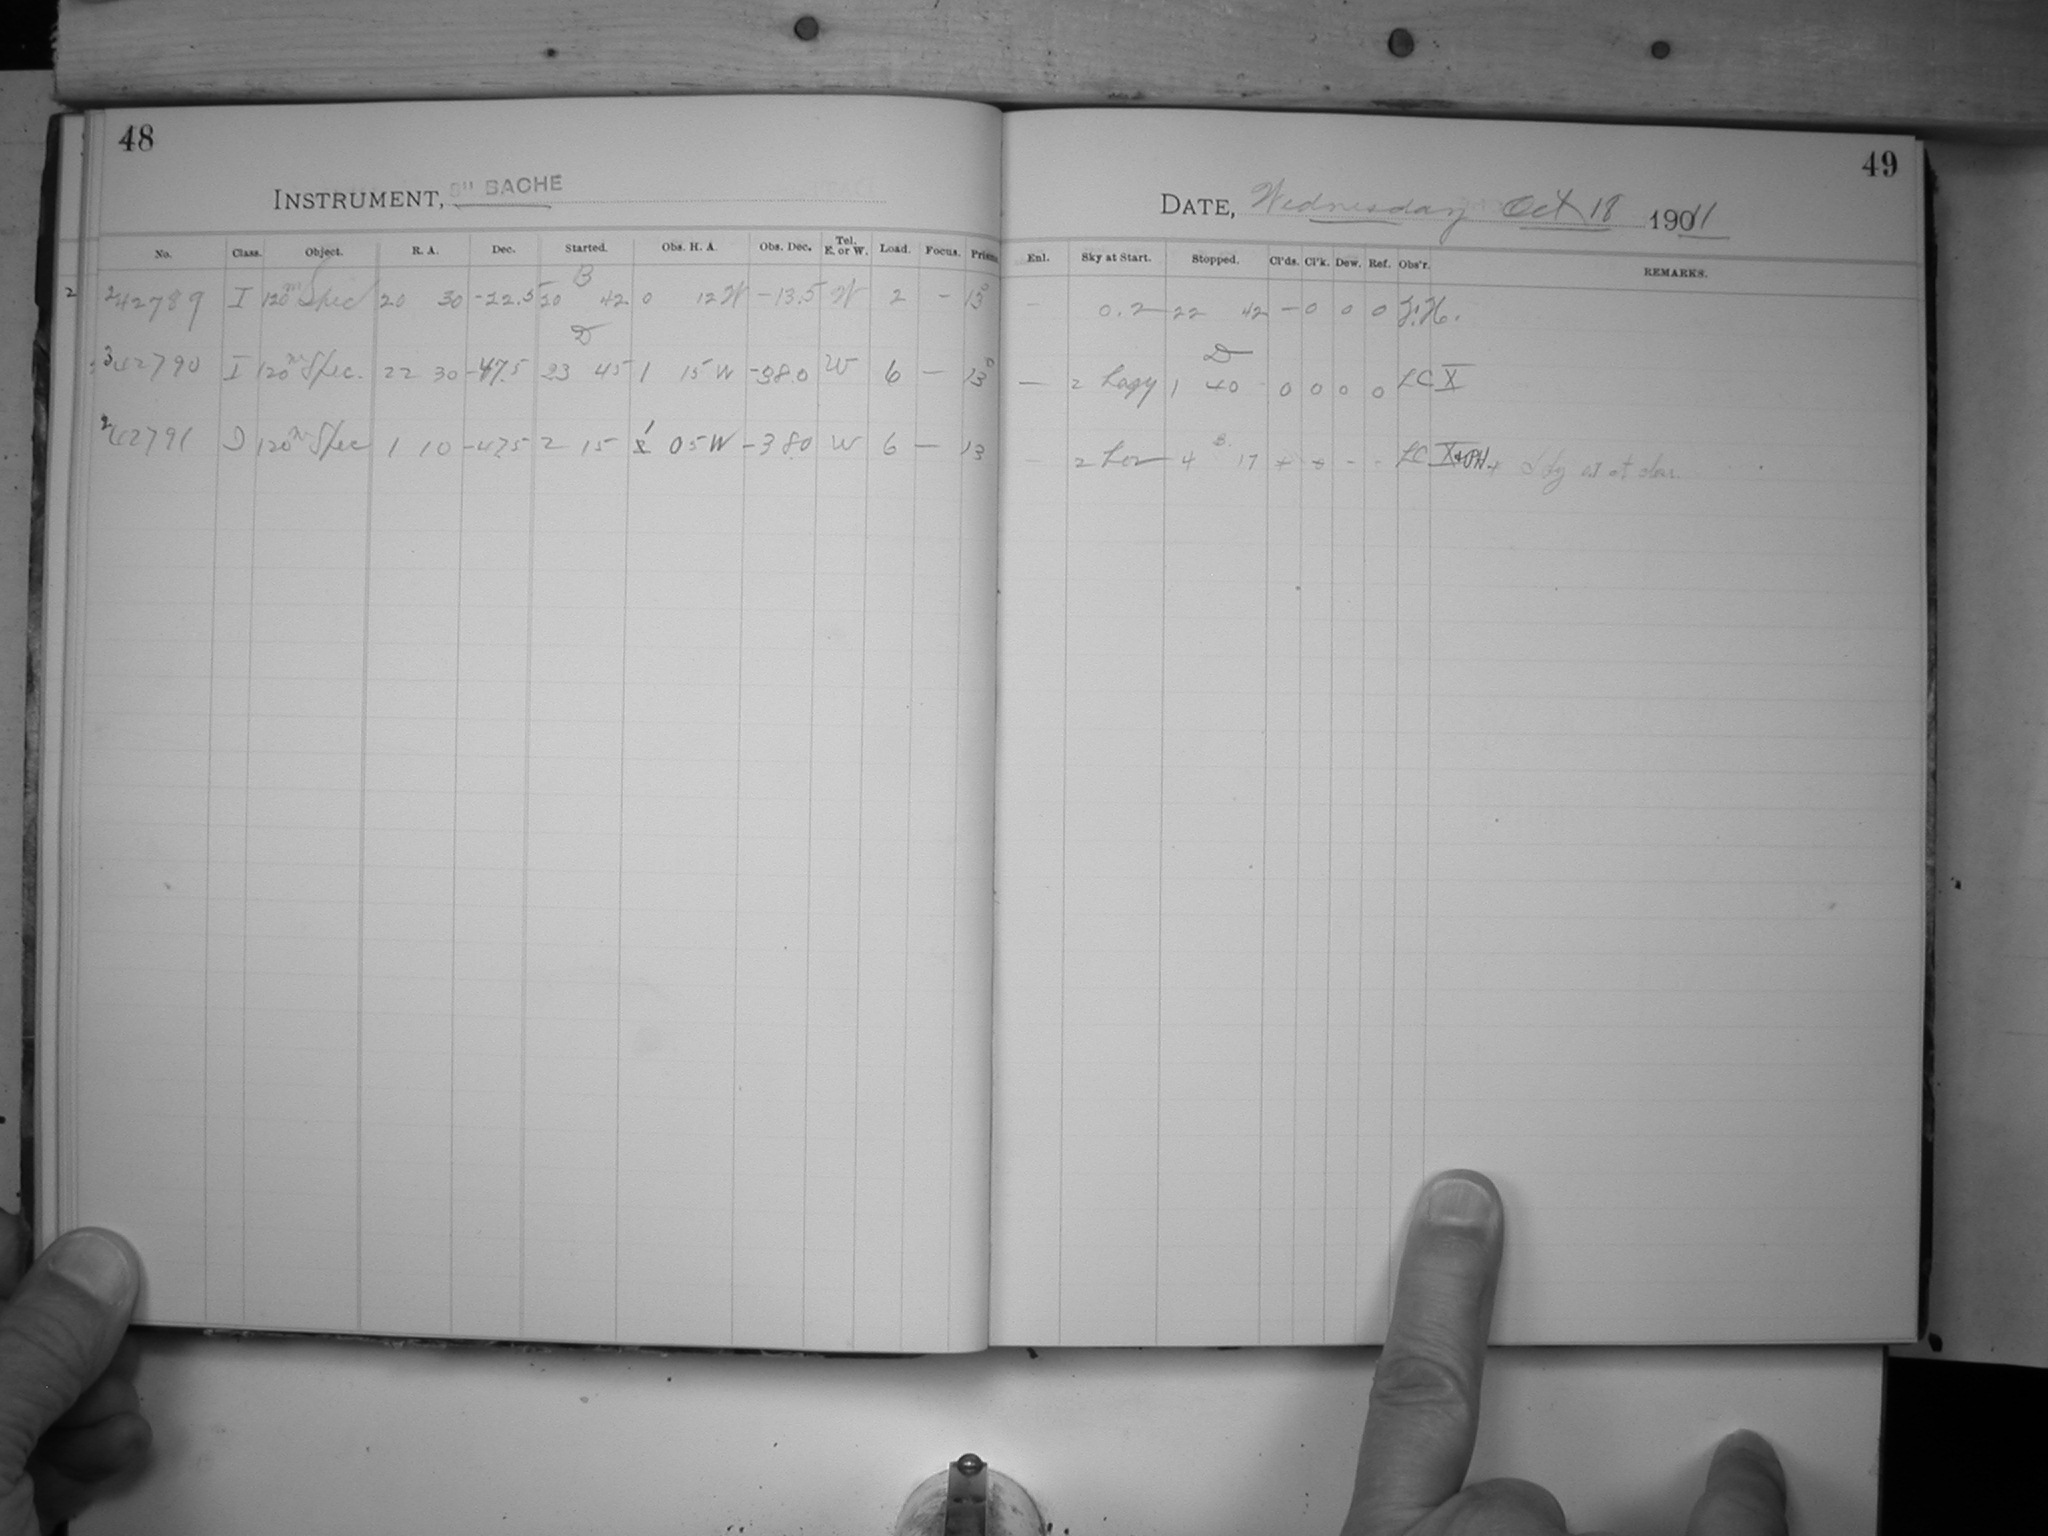 48
INSTRUMENT, 8" BACHE
No. Class. Object. R. A. Dec. Started. Obs. H. A. Obs. Dec. Tel. E. or W. Load. Focus. Prism
B
2 42789 I 120m Spec 20 30 -22.5 20 42 0 12 W -13.5 W 2 - 13°
D
42790 I 120m Spec. 22 30 -47.5 23 45 1 15 W -38.0 W 6 — 13°
42791 I 120m Spec 1 10 -47.5 2 15 1 05 W -38.0 W 6 — 13
49
DATE, Wednesday Oct 18 1911
Enl. Sky at Start. Stopped. Cl'ds. Cl'k. Dew. Ref. Obs'r. REMARKS.
— 0.2 22 42 - 0 0 0
D
— 2 hazy 1 40 0 0 0 0 LC X
B.
— 2 4 17 - - LC X